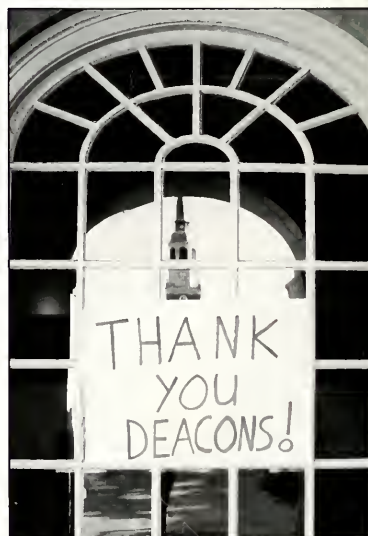 THANK
YOU
DEACONS!